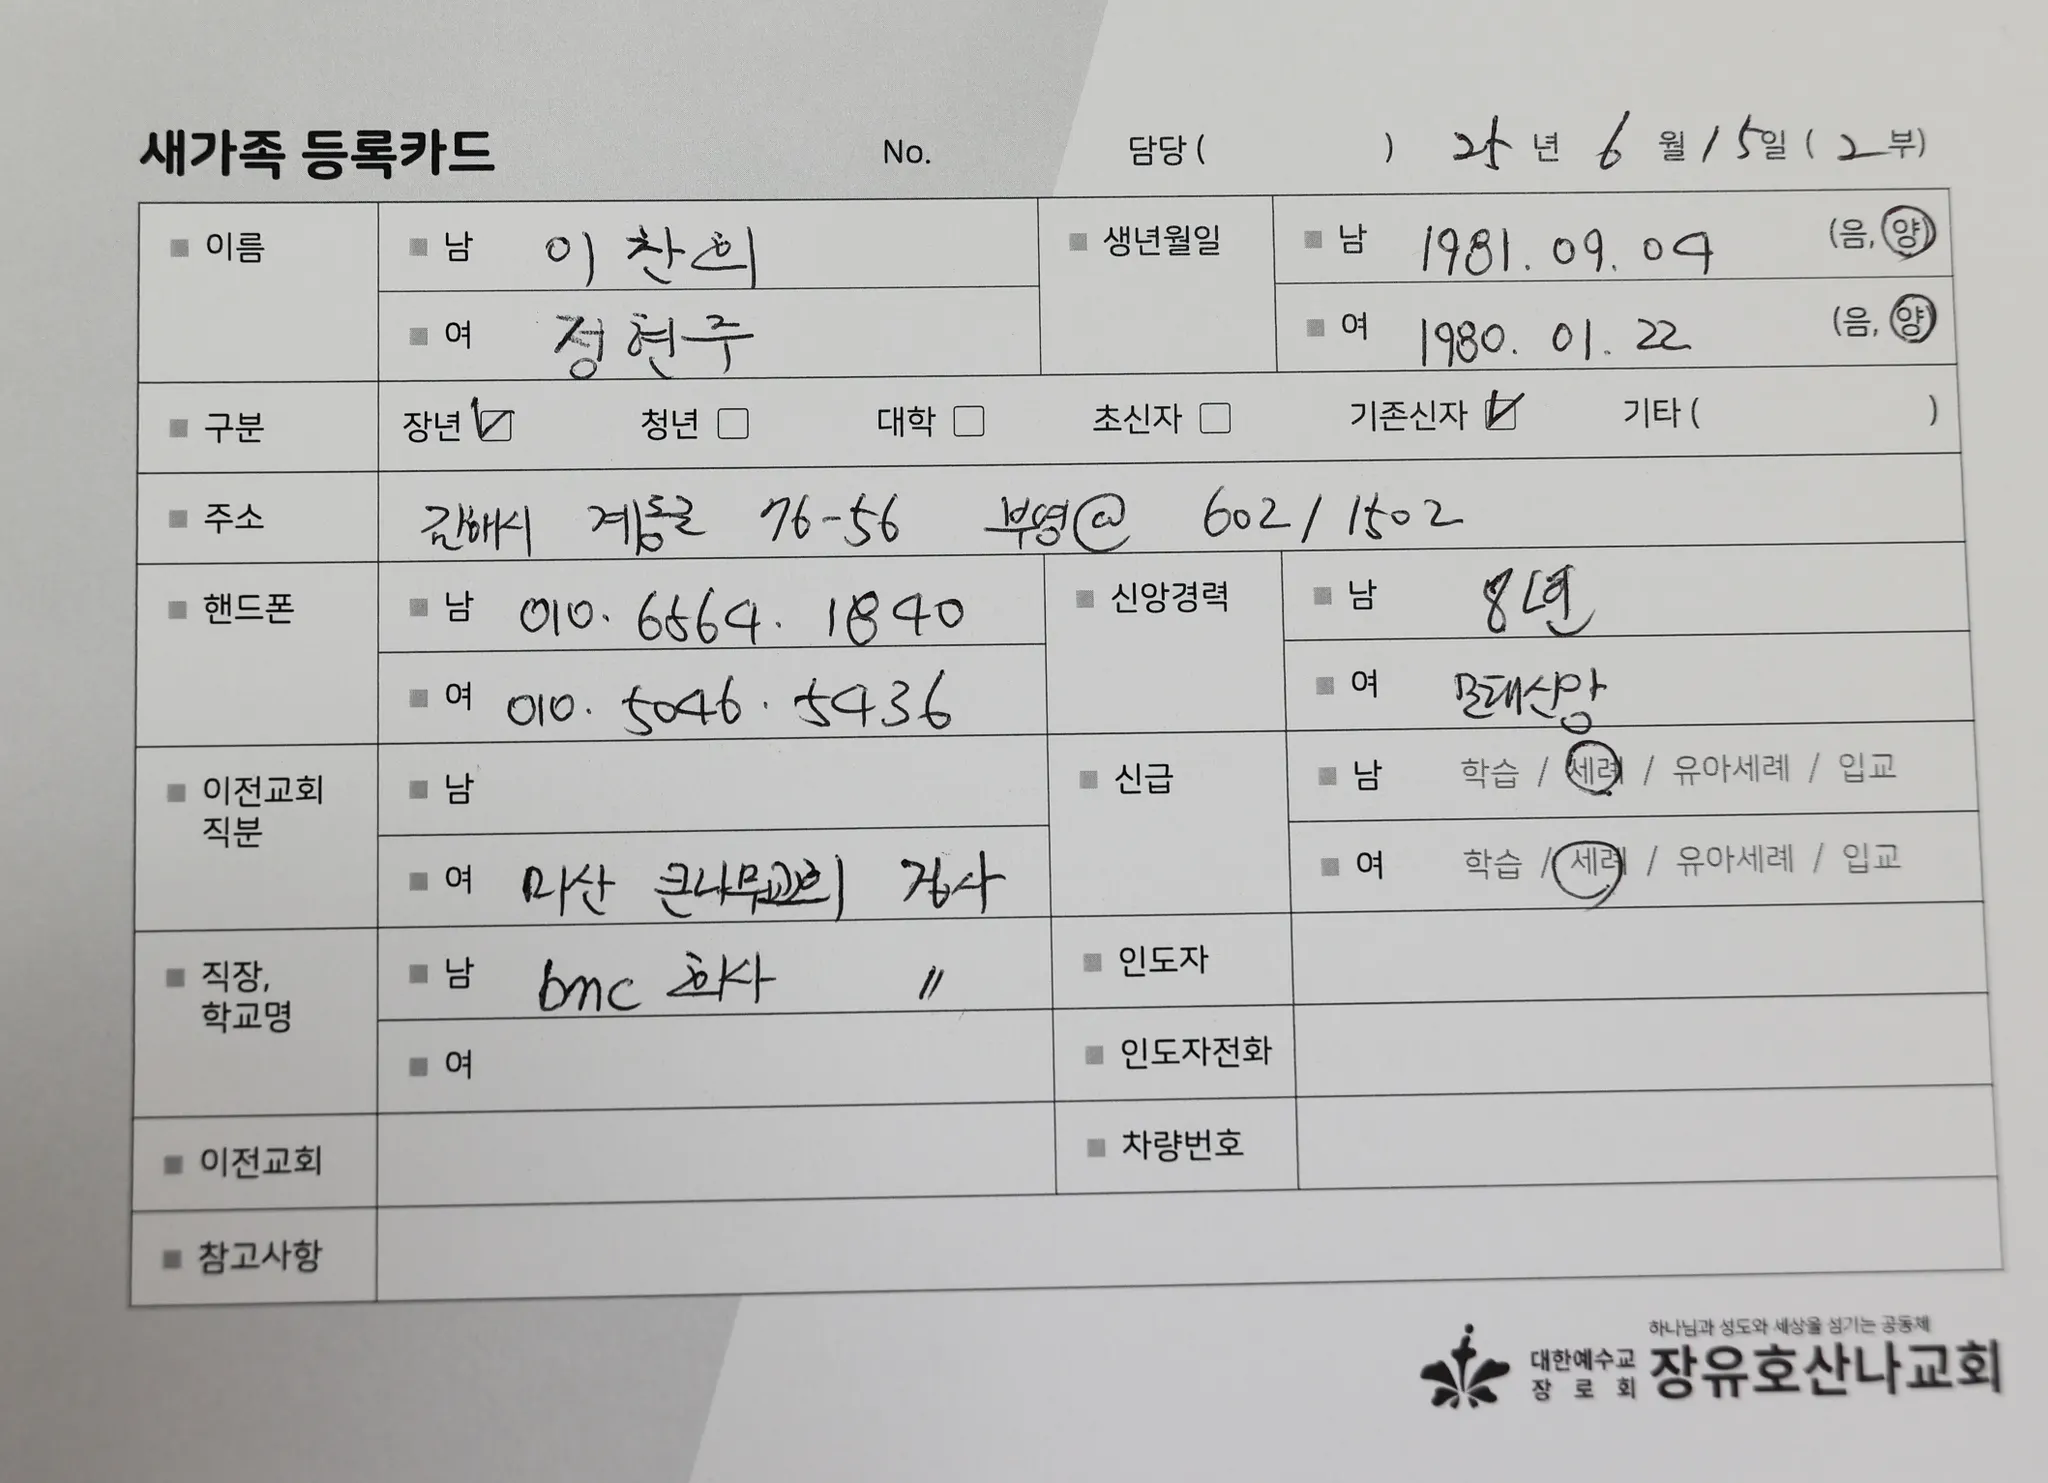 새가족 등록카드 No. 담당 ( ) 25 년 6 월 15일 ( 2 부)
이름 남 이찬희 생년월일 남 1981. 09. 04 (음, 양)
여 정현주 여 1980. 01. 22 (음, 양)
구분 장년 청년 대학 초신자 기존신자 기타 ( )
주소 김해시 계동로 76-56 부영@ 602 / 1502
핸드폰 남 010. 6564. 1840 신앙경력 남 8년
여 010. 5046. 5436 여 모태신앙
이전교회 직분 남 신급 남 학습 / 세례 / 유아세례 / 입교
여 마산 큰나무교회 집사 여 학습 / 세례 / 유아세례 / 입교
직장, 학교명 남 bmc 회사 〃 인도자
여 인도자전화
이전교회 차량번호
참고사항
하나님과 성도와 세상을 섬기는 공동체
대한예수교 장로회 장유호산나교회